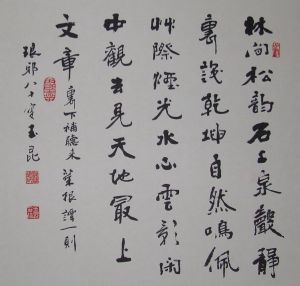 林間松韵石上泉聲靜
裏識乾坤自然鳴佩
艸際煙光水心雲影閑
中觀去見天地最上
文章 裏下補聽來 菜根譚一則
琅邪八十叟玉昆